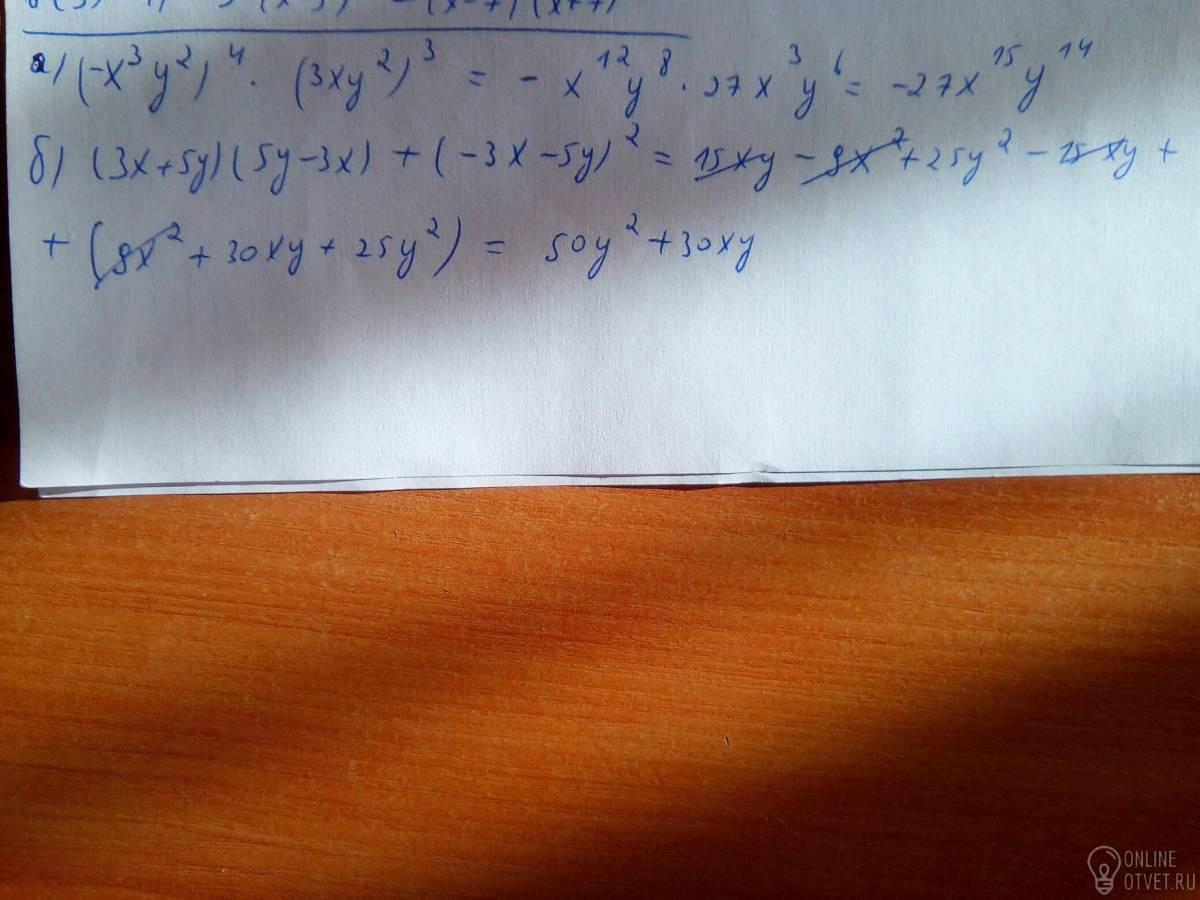 а) (-x³y²)⁴ · (3xy²)³ = - x¹²y⁸ · 27x³y⁶ = -27x¹⁵y¹⁴
б) (3x+5y)(5y-3x) + (-3x-5y)² = 15xy - 9x² + 25y² - 15xy +
+ (9x² + 30xy + 25y²) = 50y² + 30xy
ONLINE
OTVET.RU